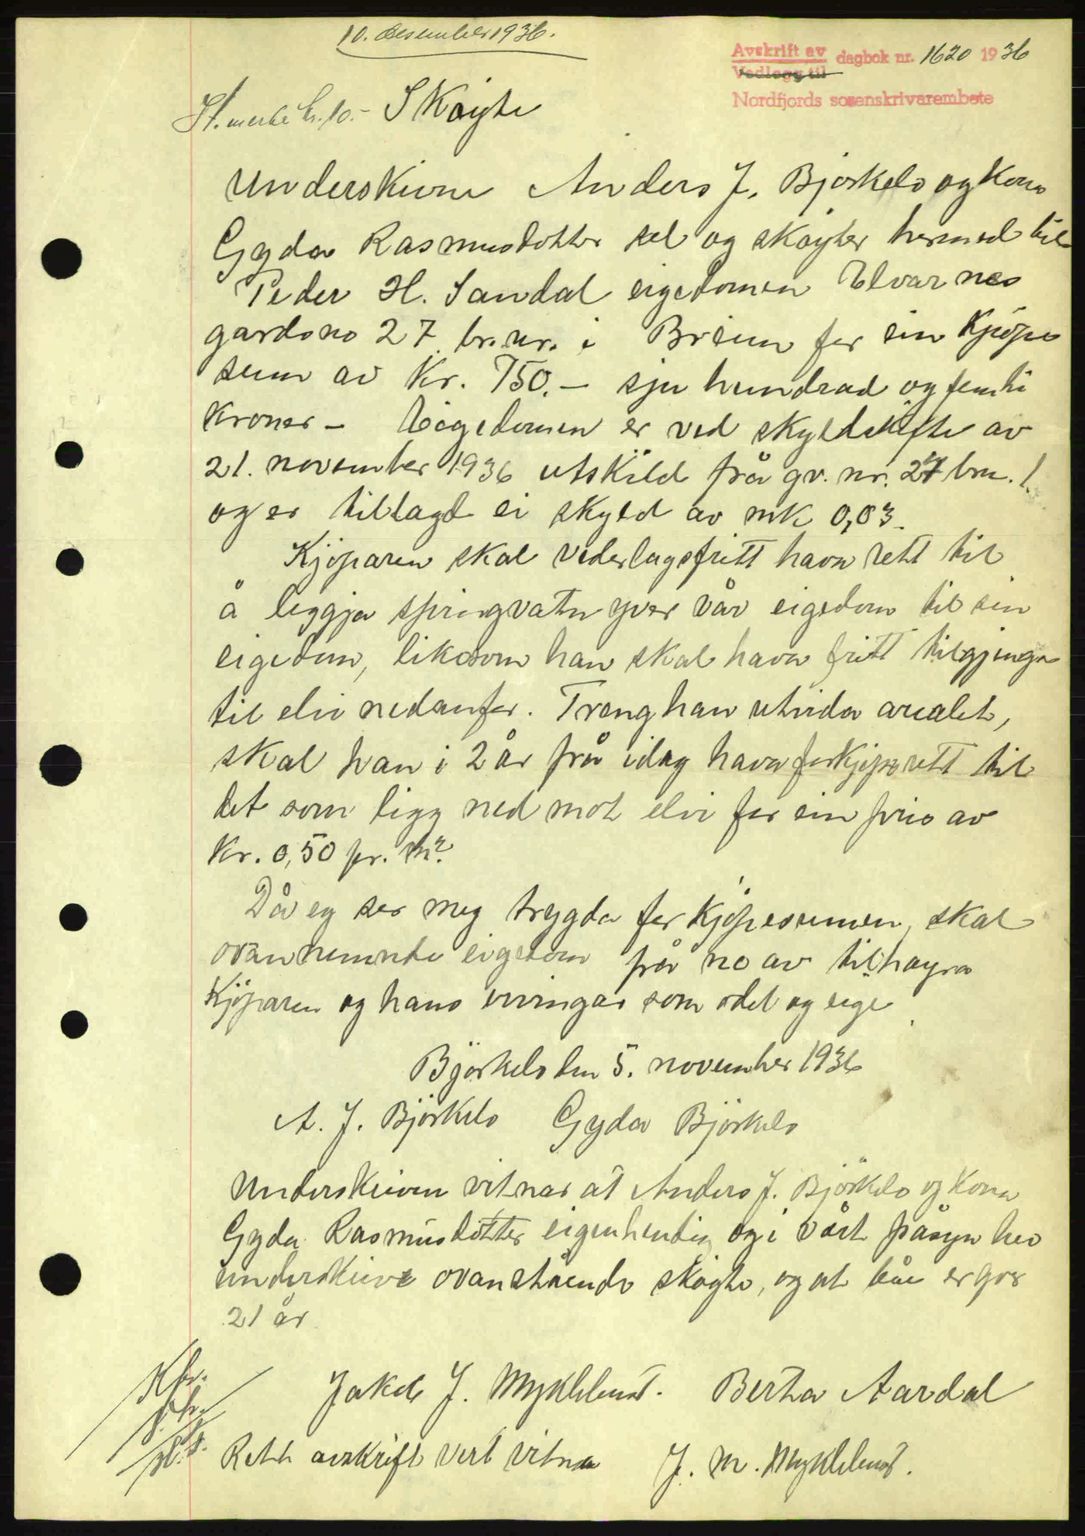 10. desember 1936.
Avskrift av dagbok nr. 1620 1936
Vedlegg til
Nordfjords sorenskrivarembete
St. merke kr. 10.- Skøyte
Underskrivne Anders J. Bjørkelo og kona
Gyda Rasmusdotter sel og skøyter hermed til
Peder H. Sandal eigedomen Elvarnes
gardsno 27 br. nr. i Breim for ein kjøpe
sum av kr. 750.- sju hundrad og femti
kroner - Eigedomen er ved skyldskifte av
21. november 1936 utskild frå gr. nr. 27 brn. 1.
og er tillagd ei skyld av mk 0,03.
Kjöparen skal vederlagsfritt hava rett til
å leggja springvatn yver vår eigedom til sin
eigedom, likesom han skal hava fritt tilgjenge
til elvi nedanfor. Treng han utvida arealet,
skal han i 2 år frå idag hava forkjøpsrett til
det som ligg ned mot elvi for ein pris av
Kr. 0,50 pr. m².
Då eg ser meg trygda for kjöpesumen, skal
ovannemnde eigedom frå no av tilhøyra
Kjöparen og hans ervingar som odel og eige
Björkelo den 5. november 1936
A. J. Björkelo Gyda Björkelo
Underskriven vitnar at Anders J. Björkelo og kona
Gyda Rasmusdotter eigenhendig og i vårt påsyn hev
underskrive ovanståande skøyte, og at båe er yver
21 år
Jakob J. Myklebust. Berta Aardal
Rett avskrift vert vitna J. M. Myklebust.